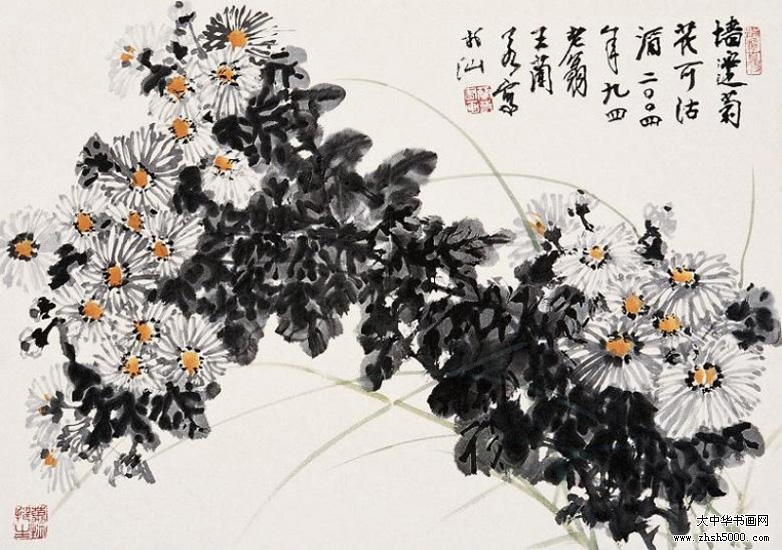 墙邊菊
花可沽
酒二〇〇四
年九四
老翁
王蘭
若寫
於汕
大中华书画网
www.zhsh5000.com